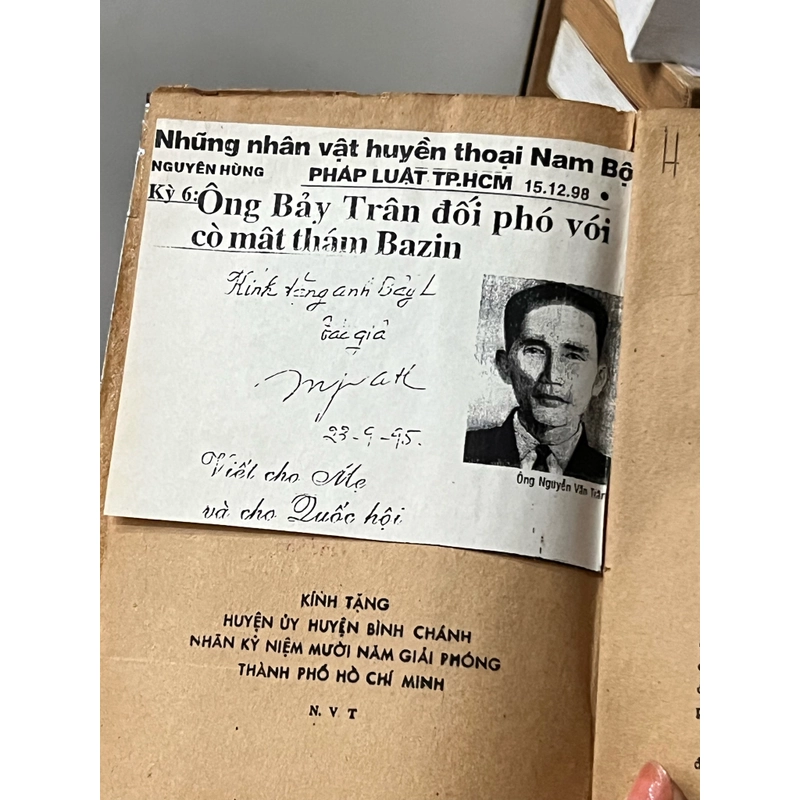 Những nhân vật huyền thoại Nam Bộ
NGUYÊN HÙNG PHÁP LUẬT TP.HCM 15.12.98 •
Kỳ 6: Ông Bảy Trân đối phó với
cò mật thám Bazin
Kính tặng anh Bảy L
Tác giả
23-9-95.
Viết cho Mẹ
và cho Quốc hội
Ông Nguyễn Văn Trấn
KÍNH TẶNG
HUYỆN ỦY HUYỆN BÌNH CHÁNH
NHÂN KỶ NIỆM MƯỜI NĂM GIẢI PHÓNG
THÀNH PHỐ HỒ CHÍ MINH
N. V. T
H